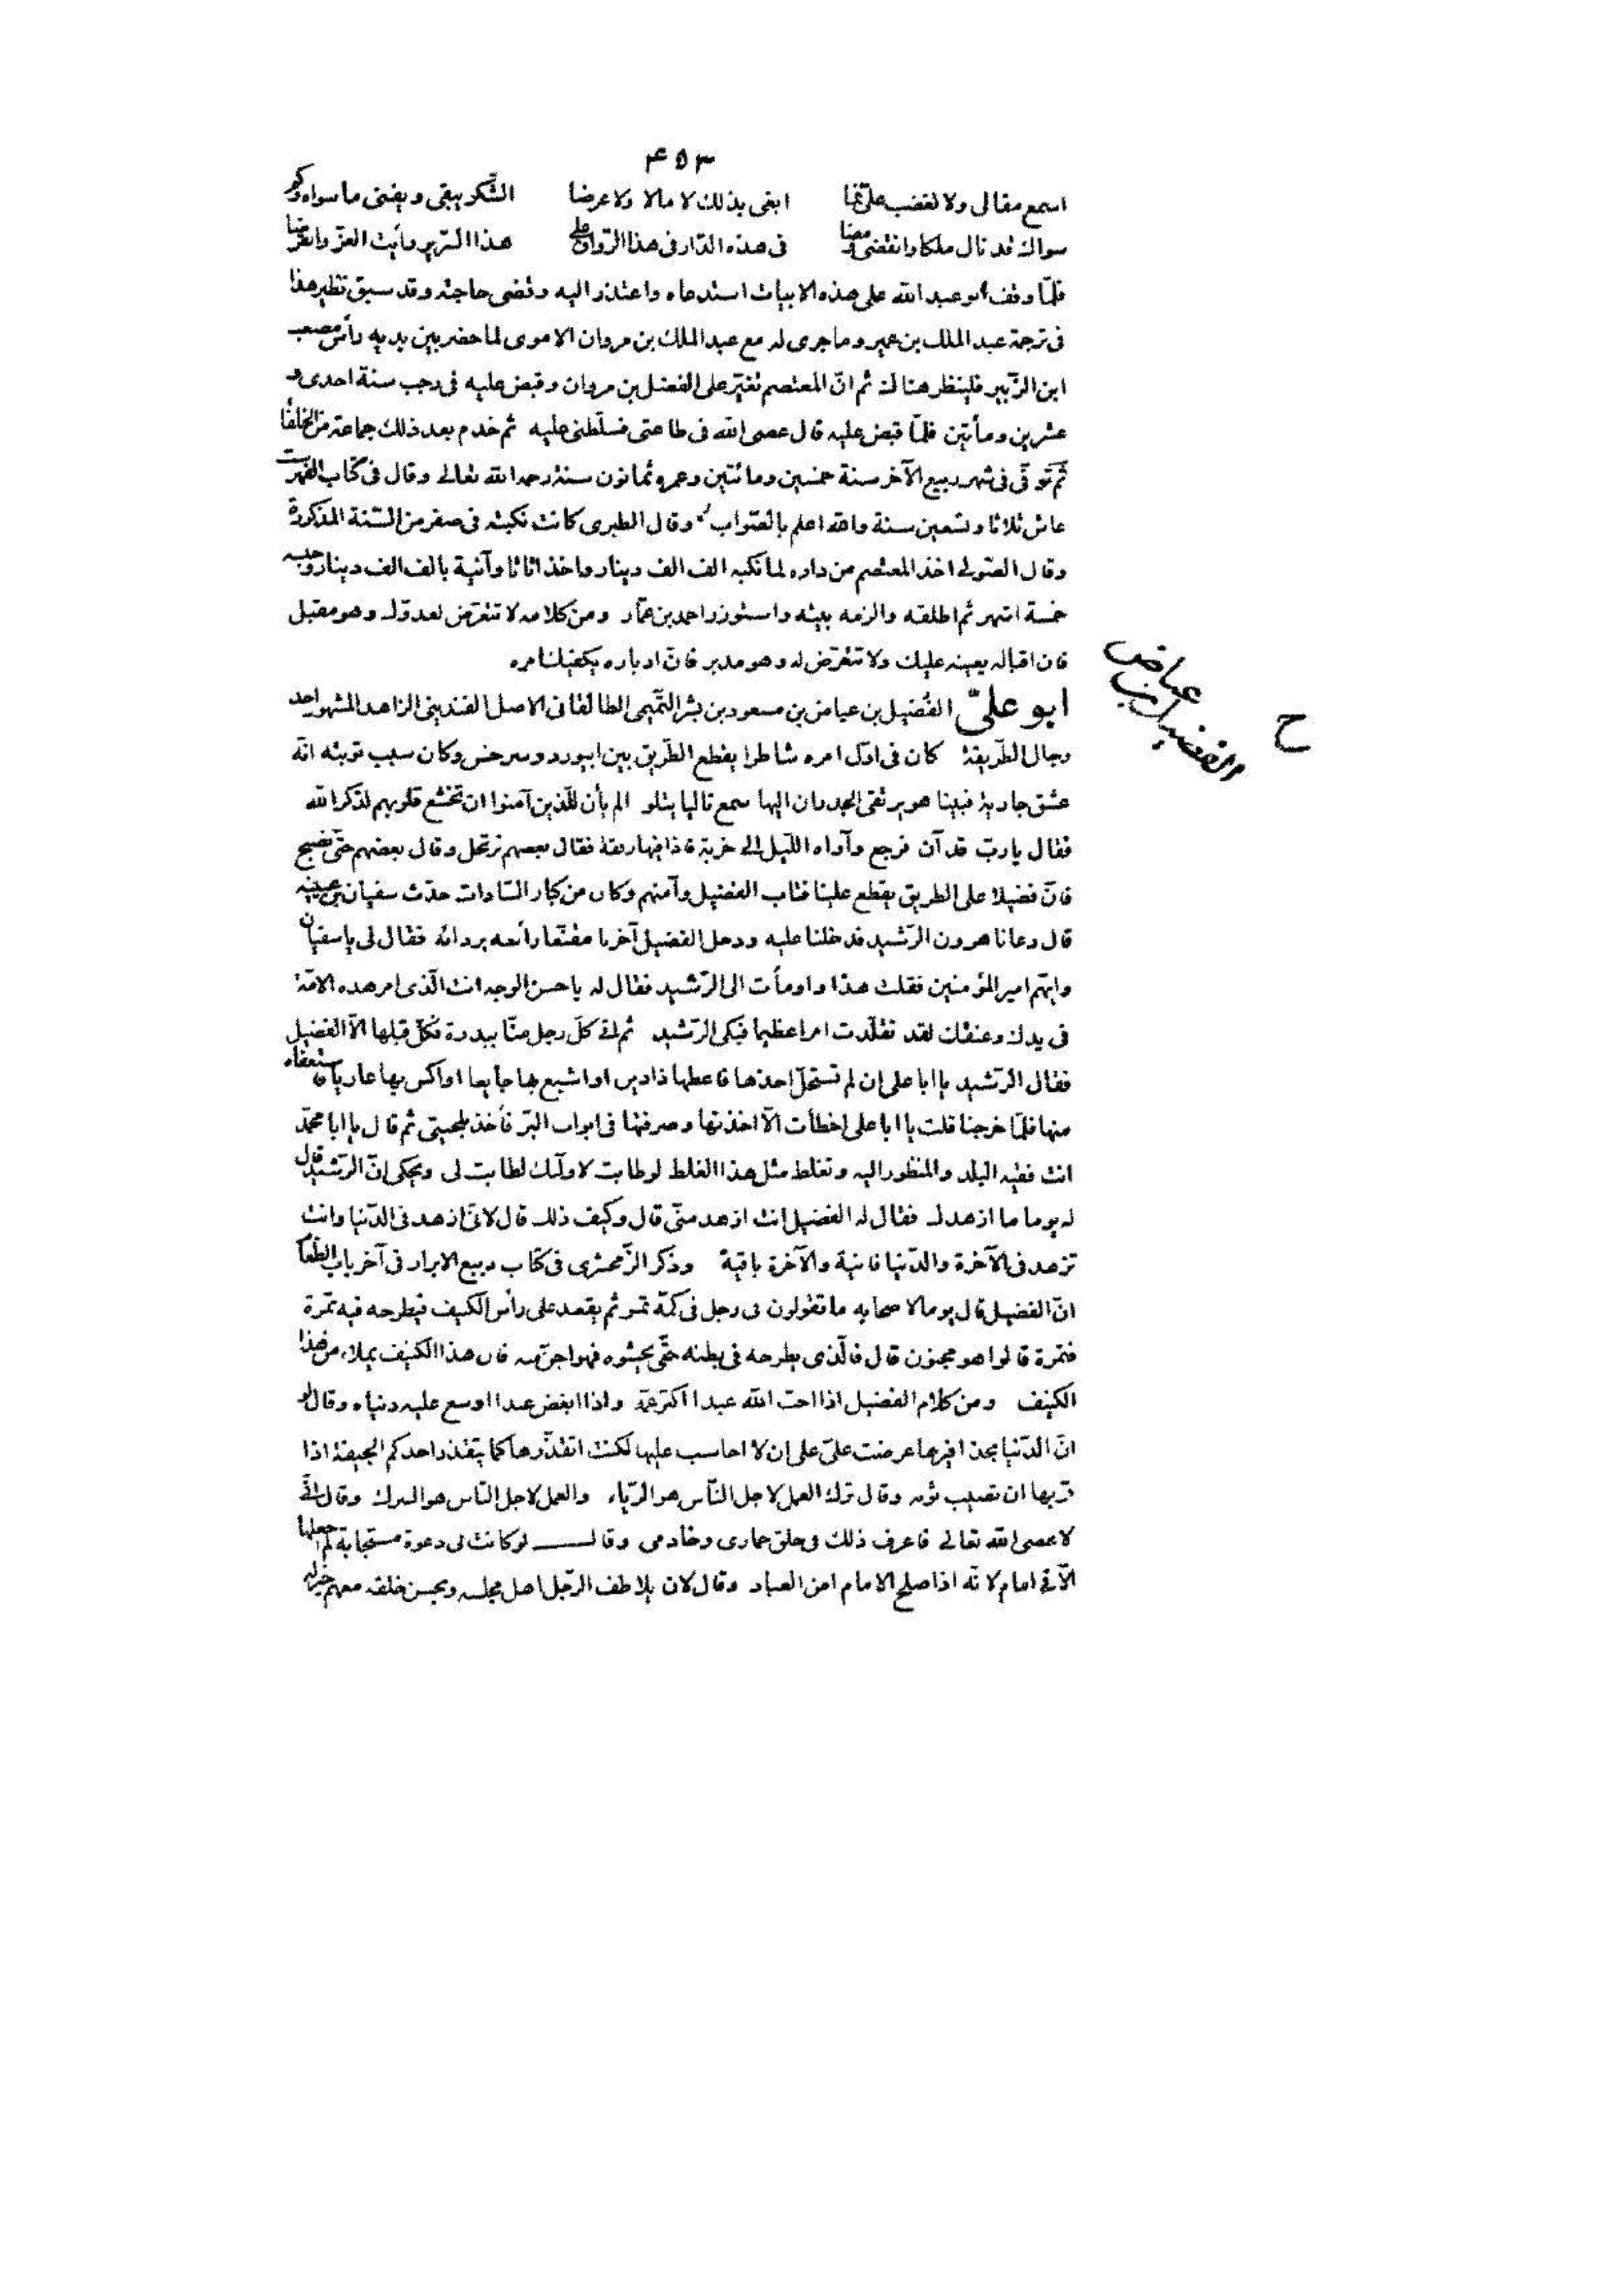 ٤٥٣
اسمع مقالى ولا تغضب علىّ فما ابغى بذلك لا مالا ولا عرضا الشّكر يبقى ويفنى ما سواه وكم
سواك قد نال ملكا وانقضى ومضا فى هذه الدّار فى هذا الرّواق على هذا السّرير رأيت العزّ وانقرضا
فلمّا وقف ابو عبد الله على هذه الابيات استدعاه واعتذر اليه وقضى حاجته وقد سبق نظير هذا
فى ترجمة عبد الملك بن عمير وما جرى له مع عبد الملك بن مروان الاموى لما حضر بين يديه رأس مصعب
ابن الزّبير فلينظر هناك ثم انّ المعتصم تغيّر على الفضل بن مروان وقبض عليه فى رجب سنة احدى و
عشرين ومأتين فلمّا قبض عليه قال عصى الله فى طاعتى فسلّطنى عليه ثم خدم بعد ذلك جماعة من الخلفا
ثمّ توفّى فى شهر ربيع الآخر سنة خمسين ومائتين وعمره ثمانون سنة رحمه الله تعالى وقال فى كتاب الفهرست
عاش ثلاثا وتسعين سنة والله اعلم بالصّواب وقال الطبرى كانت نكبته فى صفر من السّنة المذكورة
وقال الصّولى اخذ المعتصم من داره لما نكبه الف الف دينار واخذ اثاثا وآنية بالف الف دينار وحبسه
خمسة اشهر ثم اطلقه والزمه بيته واستوزر احمد بن عمّار ومن كلامه لا تتعرّض لعدوّك وهو مقبل
فان اقباله يعينه عليك ولا تتعرّض له وهو مدبر فانّ ادباره يكفيك امره
ابو علىّ الفضيل بن عياض بن مسعود بن بشر التّميمى الطالقانى الاصل الفندينى الزاهد المشهور احد
رجال الطّريقة كان فى اوّل امره شاطرا يقطع الطّريق بين ابيورد وسرخس وكان سبب توبته انّه
عشق جارية فبينا هو يرتقى الجدران اليها سمع تاليا يتلو الم يأن للّذين آمنوا ان تخشع قلوبهم لذكر الله
فقال يا ربّ قد آن فرجع وآواه اللّيل الى خربة فاذا فيها رفقة فقال بعضهم نرتحل وقال بعضهم حتّى نصبح
فانّ فضيلا على الطريق يقطع علينا فتاب الفضيل وآمنهم وكان من كبار السّادات حدّث سفيان بن عيينه
قال دعانا هرون الرّشيد فدخلنا عليه ودخل الفضيل آخرنا مقنّعا رأسه بردائه فقال لى يا سفيان
وايّهم امير المؤمنين فقلت هذا واومأت الى الرّشيد فقال له يا حسن الوجه انت الّذى امر هذه الامّة
فى يدك وعنقك لقد تقلّدت امرا عظيما فبكى الرّشيد ثم اتى كلّ رجل منّا ببدرة فكلّ قبلها الّا الفضيل
فقال الرّشيد يا ابا على ان لم تستحلّ اخذها فاعطها ذا دين او اشبع بها جايعا او اكس بها عاريا فاستعفاه
منها فلمّا خرجنا قلت يا ابا على اخطأت الّا اخذتها وصرفتها فى ابواب البرّ فأخذ بلحيتى ثم قال يا ابا محمّد
انت فقيه البلد والمنظور اليه وتغلط مثل هذا الغلط لو طابت لاولٓئك لطابت لى ويحكى انّ الرّشيد قال
له يوما ما ازهدك فقال له الفضيل انت ازهد منّى قال وكيف ذلك قال لانّى ازهد فى الدّنيا وانت
تزهد فى الآخرة والدّنيا فانية والآخرة باقية وذكر الزّمخشرى فى كتاب ربيع الابرار فى آخر باب الطّعام
انّ الفضيل قال يوما لاصحابه ما تقولون فى رجل فى كمّه تمر ثم يقعد على رأس الكنيف فيطرحه فيه تمرة
فتمرة قالوا هو مجنون قال فالّذى يطرحه فى بطنه حتّى يحشوه فهو اجنّ منه فان هذا الكنيف يملاء من هذا
الكنيف ومن كلام الفضيل اذا احبّ الله عبدا اكثر غمّه واذا ابغض عبدا اوسع عليه دنياه وقال لو
انّ الدّنيا بحذافيرها عرضت علىّ على ان لا احاسب عليها لكنت اتقذّرها كما يتقذر احدكم الجيفة اذا
مرّ بها ان تصيب ثوبه وقال ترك العمل لاجل النّاس هو الرّياء والعمل لاجل النّاس هو الشرك وقال انّى
لاعصى الله تعالى فاعرف ذلك فى خلق حمارى وخادمى وقال لو كانت لى دعوة مستجابة لم اجعلها
الّا فى امام لانّه اذا صلح الامام امن العباد وقال لان يلاطف الرّجل اهل مجلسه ويحسن خلقه معهم خير له
ح
الفضيل بن عياض